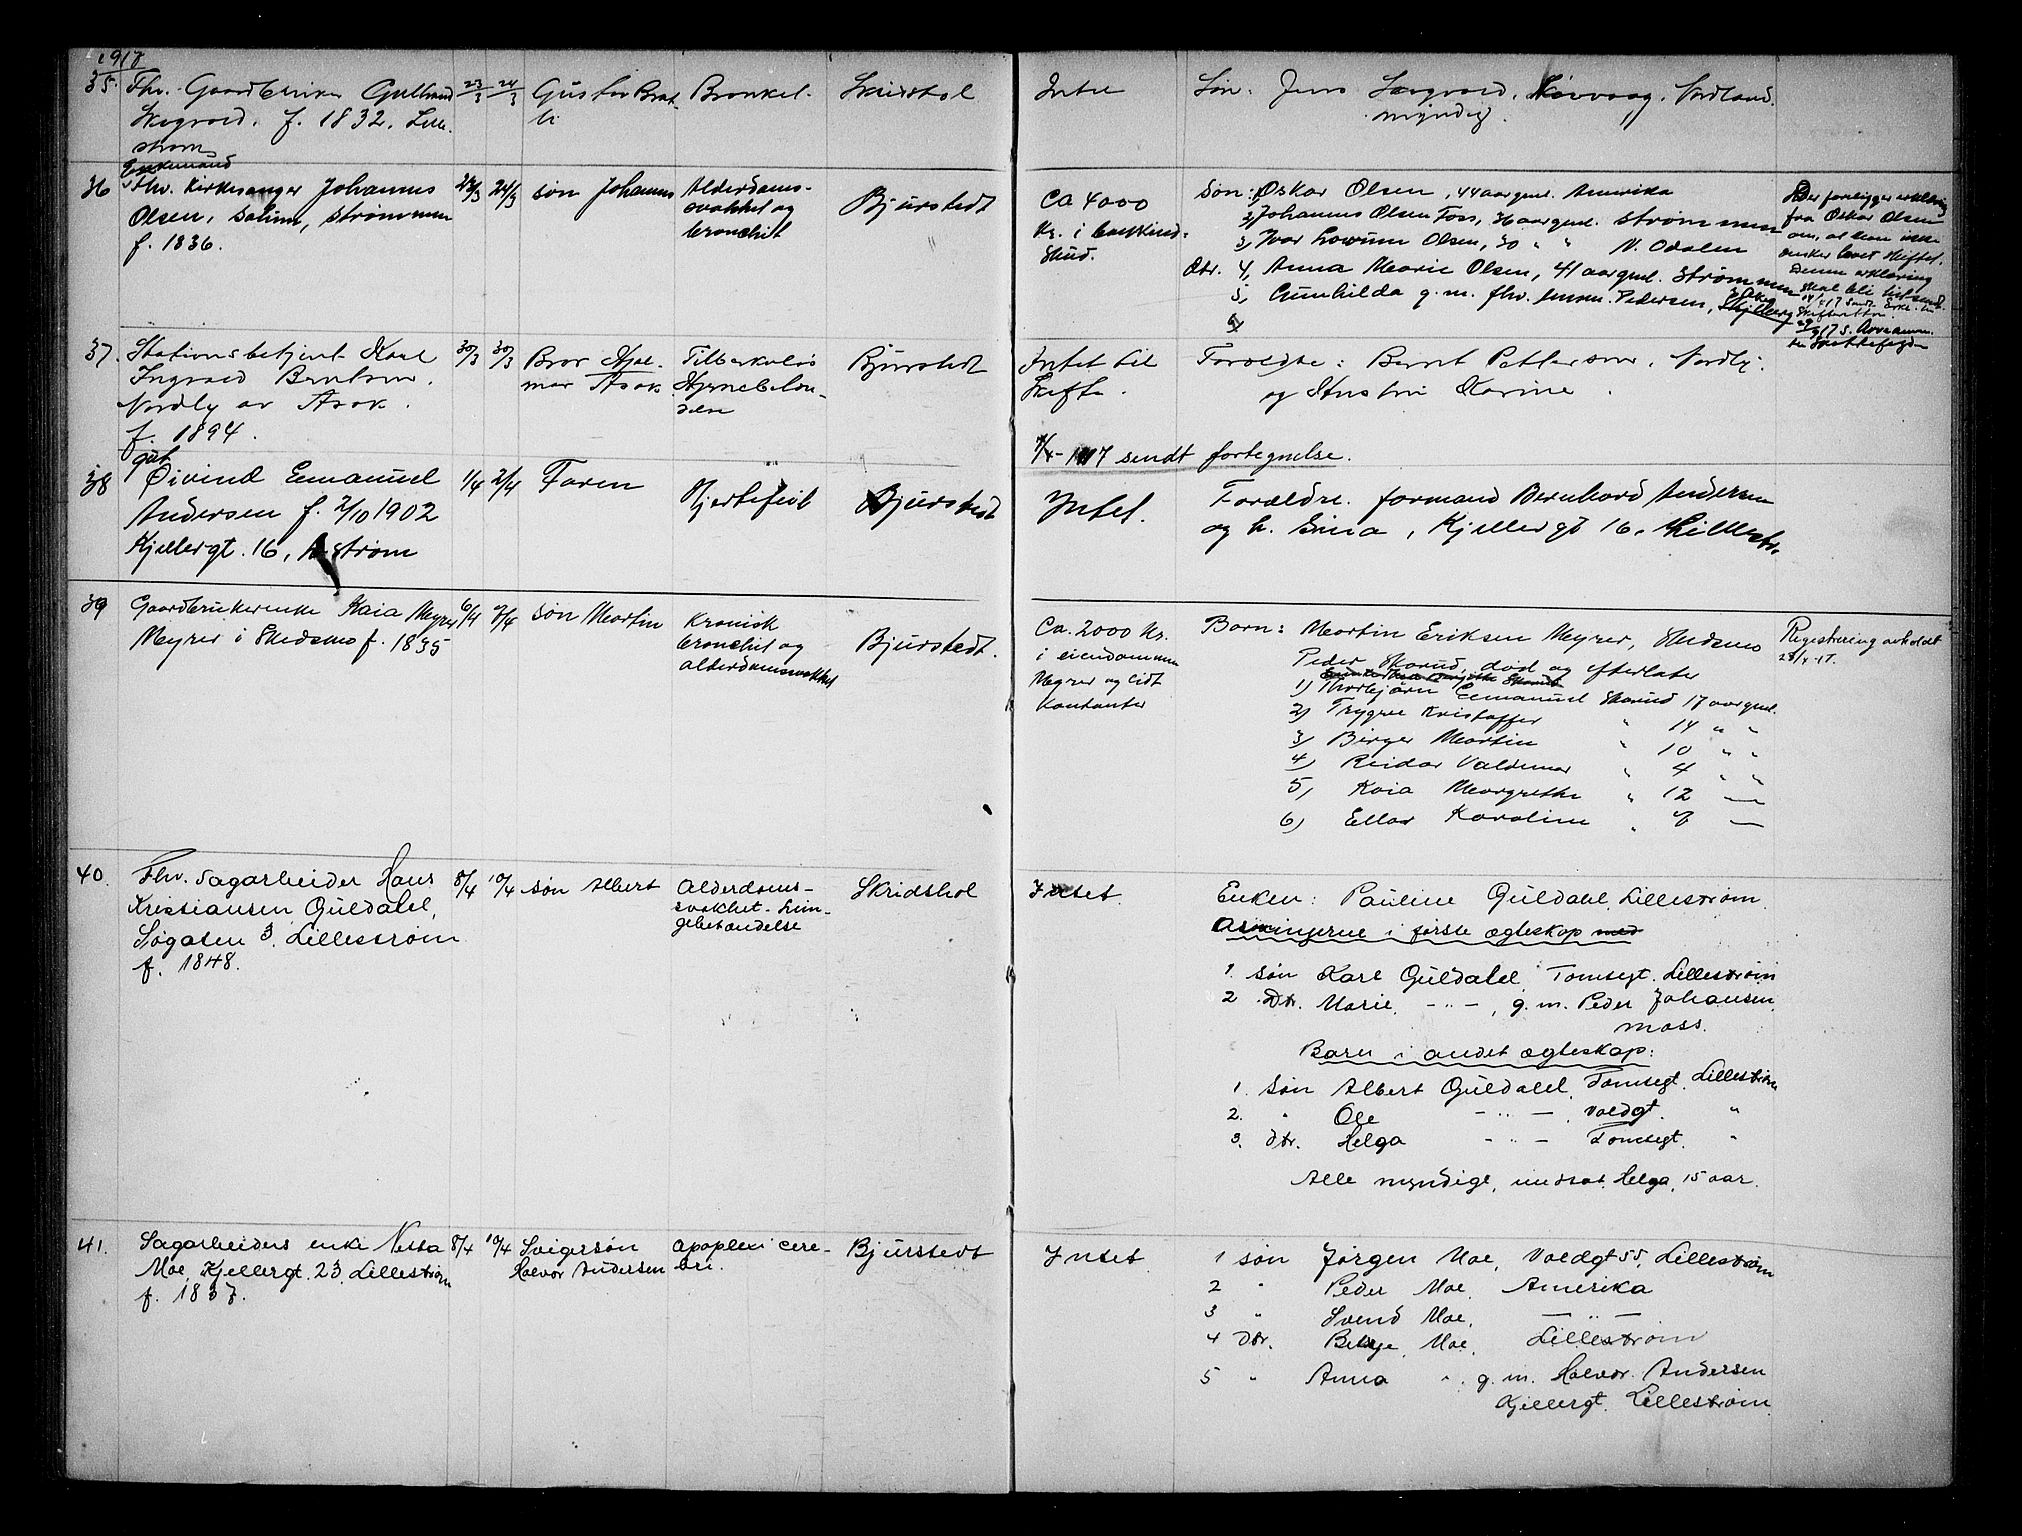 1917
35. Fhv. Gaardbruker Gulbrand
23/3 24/3 Gustav Brat-
li Bronkel. Skridshol
Intet Søn: Jens
f. 1832. Lille-
strøm
myndig.
Nordland.
Enkemand
36 fhv. Kirkesanger Johannes
Olsen, Solum, Strømmen
f. 1836.
24/3 søn Johannes
Alderdoms-
svakhet og
bronchit
Bjurstedt
Ca 4000
Kr. i
Søn: 1) Oskar Olsen, 44 aar gml. Amerika
2) Johannes Olsen Foss, 36 aar gml. Strømmen
3) Ivar Olsen, 30 " " N. Odalen
Dtr. 4, Anna Marie Olsen, 41 aar gml. Strømmen
5, Gunhilda g. m. fhv. Pedersen,
6)
Der foreligger erklæring
fra Oskar Olsen
om, at han ikke
ønsker
Denne erklæring
skal bli
37. Stationsbetjent Karl
Ingvald Berntsen.
Nordly av Asak.
f. 1894.
30/3 30/3 Bror Hjal-
mar Asak
Tuberkuløs
Hjernebeten-
delse
Bjurstedt
Intet til
Skifte.
Forældre: Bernt Pettersen, Nordly.
og Karine.
17 sendt fortegnelse.
gut
38 Øivind Emanuel
Andersen f. 2/10 1902
Kjellergt. 16, L.strøm
1/4 2/4 Faren
Hjertefeil
Bjurstedt
Intet.
Forældre. formand Bernhard Andersen
og h. , Kjellergt 16, Lillestr.
39 Gaardbrukerenke Kaia Meyrer
Meyrer i Skedsmo f. 1835
6/4 7/4 søn Martin
Kronisk
bronchit og
alderdomssvakhet
Bjurstedt.
Ca. 2000 Kr.
i eiendommen
Meyrer og lidt
kontanter
Barn: Martin Eriksen Meyrer, Skedsmo
Peder Skarud, død og efterlater
1) Thorbjørn Emanuel Skarud 17 aar gml.
2) Trygve Kristoffer " 14 " "
3) Birger Martin " 10 " "
4) Reidar Valdemar " 4 " "
5, Kaia Margrethe " 12 —
6) Ella Karoline " 7 —
Registrering avholdt
28/4-17.
40. Fhv. sagarbeider Hans
Kristiansen Guldahl,
Søgaten 3, Lillestrøm
f. 1848.
8/4 10/4 søn Albert
Alderdoms-
svakhet - Lun-
gebetændelse
Skridshol
Intet.
Enken: Pauline Guldahl, Lillestrøm
Arvingerne i første ægteskap med
1. søn Karl Guldahl, Tomtegt. Lillestrøm
2. Dtr. Marie, -"-, g. m. Peder Johansen,
Moss.
Barn i andet ægteskap:
1. søn Albert Guldahl, Tomtegt. Lillestrøm
2. " Ole - " - Voldgt. "
3. Dtr. Helga - " - Tomtegt. "
Alle myndige, undtat Helga, 15 aar.
41. Sagarbeiders enke
Moe, Kjellergt. 23, Lillestrøm
f. 1837.
8/4 10/4 Svigersøn
Halvor Andersen
Apoplexi cere-
bri.
Bjurstedt
Intet
1 søn Jørgen Moe, Voldgt 55, Lillestrøm
2 " Peder Moe, Amerika
3 " Svend Moe, — " —
4 Dtr. Moe, Lillestrøm
5 " Anna ", g. m. Halvor Andersen
Kjellergt. Lillestrøm.